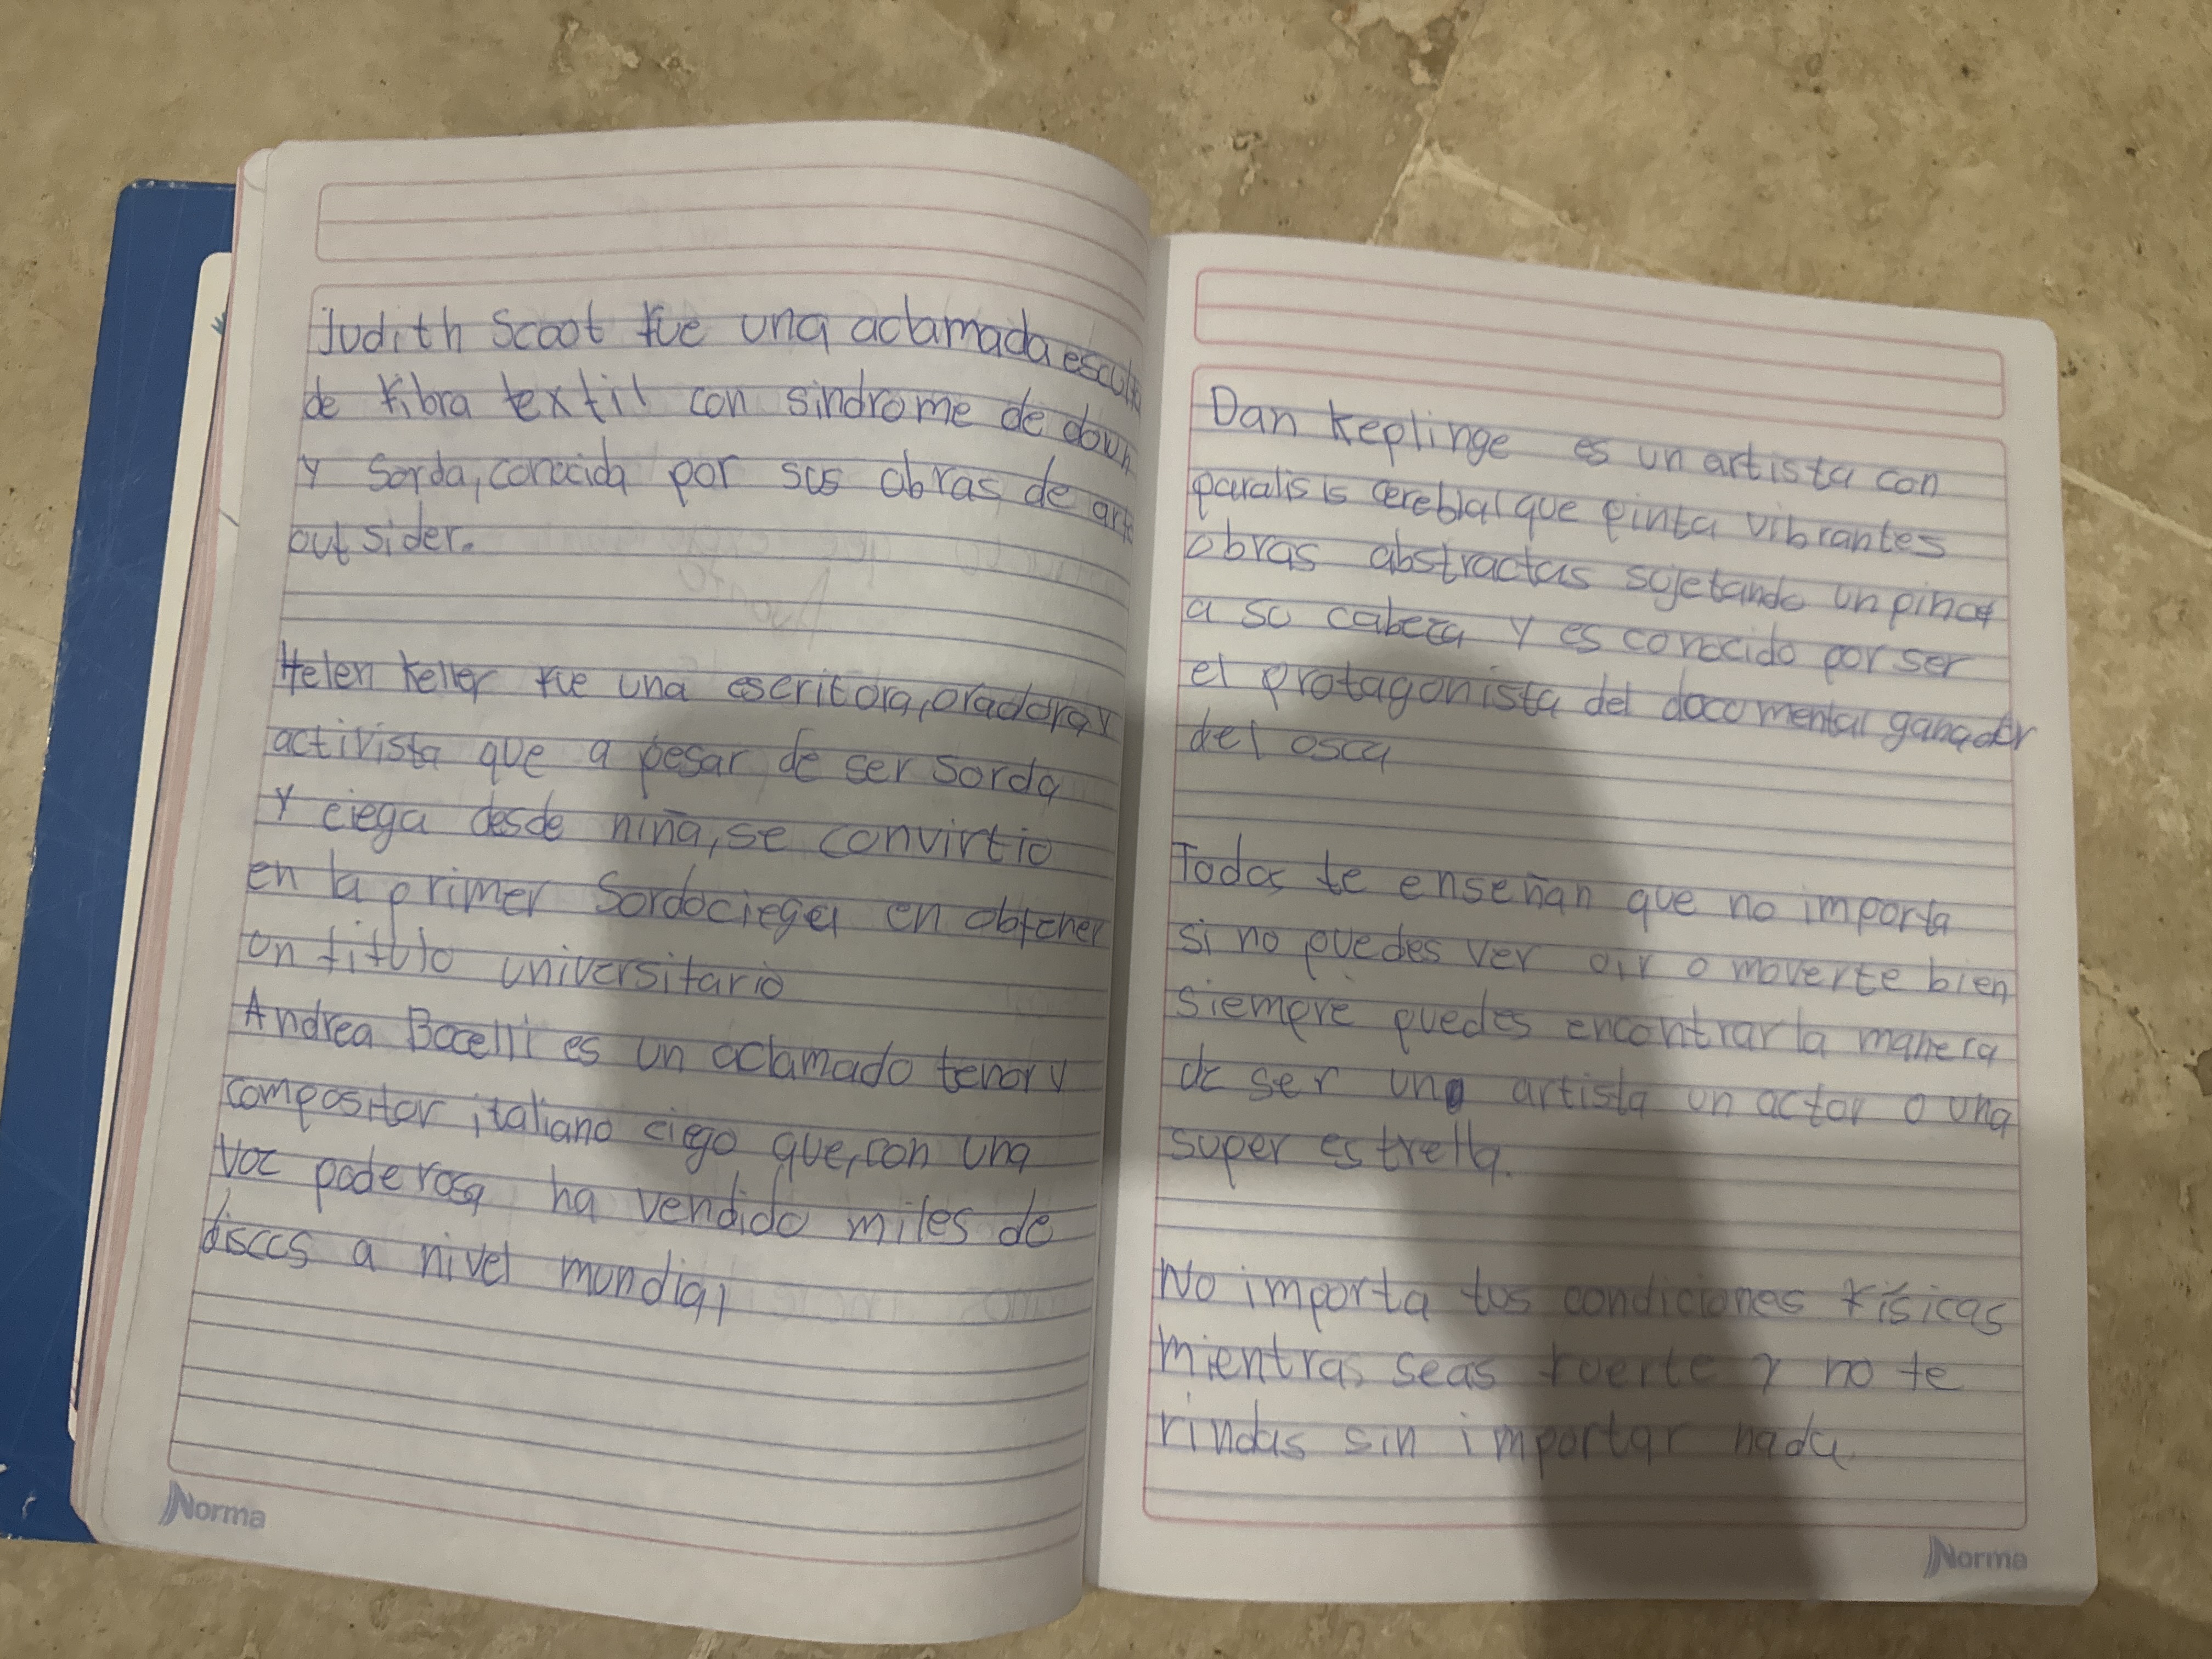 Judith Scoot fue una aclamada escultora
de fibra textil con sindrome de down
y sorda, conocida por sus obras de arte
outsider.
Helen Keller fue una escritora, oradora y
activista que a pesar de ser sorda
y ciega desde niña, se convirtio
en la primer sordociega en obtener
un titulo universitario
Andrea Bocelli es un aclamado tenor y
compositor italiano ciego que, con una
voz poderosa ha vendido miles de
discos a nivel mundial
Norma
Dan Keplinge es un artista con
paralisis cereblal que pinta vibrantes
obras abstractas sujetando un pincel
a su cabeza y es conocido por ser
el protagonista del documental ganador
del osca
Todos te enseñan que no importa
si no puedes ver oir o moverte bien
siempre puedes encontrar la manera
de ser una artista un actor o una
super estrella.
No importa tus condiciones físicas
mientras seas fuerte y no te
rindas sin importar nada.
Norma